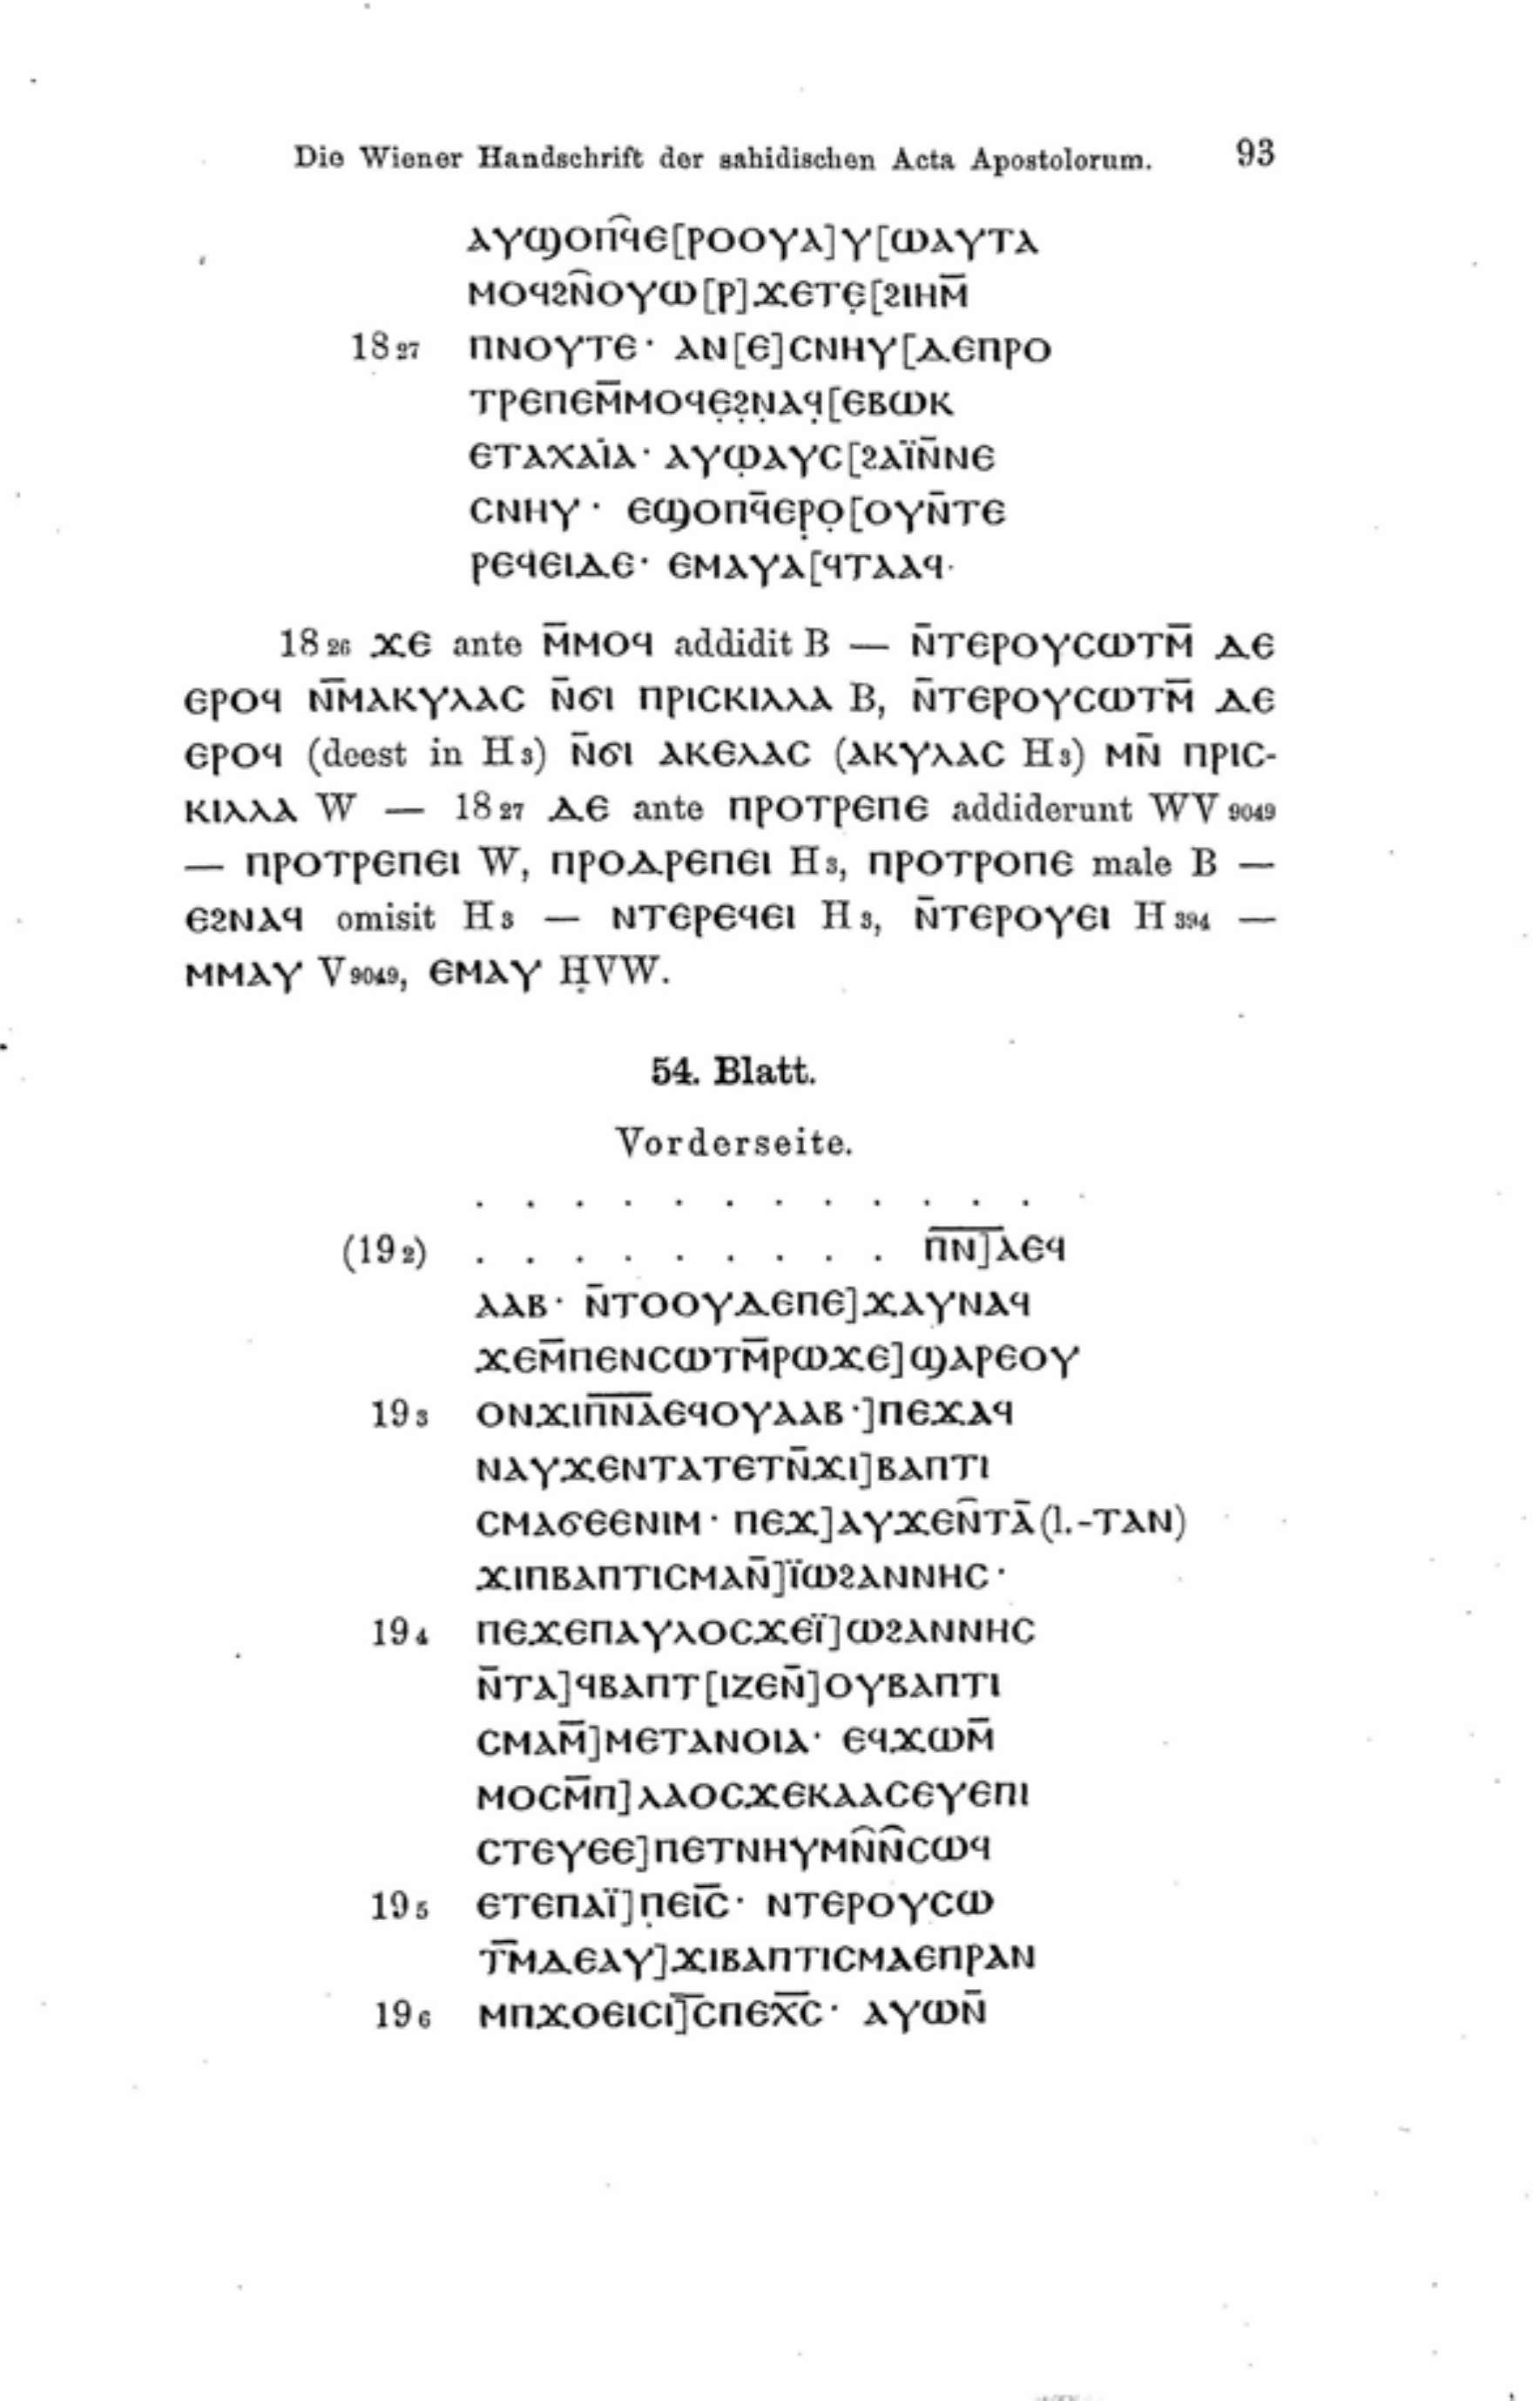 Die Wiener Handschrift der sahidischen Acta Apostolorum. 93
ⲁⲩϣⲟⲡ︤ϥⲉ[ⲣⲟⲟⲩⲁ]ⲩ[ⲱⲁⲩⲧⲁ
ⲙⲟϥϩⲛ̄ⲟⲩⲱ[ⲣ]ϫⲉⲧⲉ̣[ϩⲓⲏⲙ̄
18 27 ⲡⲛⲟⲩⲧⲉ· ⲁⲛ[ⲉ]ⲥⲛⲏⲩ[ⲇⲉⲡⲣⲟ
ⲧⲣⲉⲡⲉⲙ̄ⲙⲟϥⲉ̣ϩ̣ⲛ̣ⲁϥ̣[ⲉⲃⲱⲕ
ⲉⲧⲁⲭⲁⲓ̈ⲁ· ⲁⲩⲱ̣ⲁⲩⲥ[ϩⲁⲓ̈ⲛ̄ⲛⲉ
ⲥⲛⲏⲩ· ⲉϣⲟⲡϥ̄ⲉⲣ̣ⲟ̣[ⲟⲩⲛ̄ⲧⲉ
ⲣⲉϥⲉⲓⲇⲉ· ⲉⲙⲁⲩⲁ[ϥⲧⲁⲁϥ·
18 26 ϫⲉ ante ⲙ̄ⲙⲟϥ addidit B — ⲛ̄ⲧⲉⲣⲟⲩⲥⲱⲧⲙ̄ ⲇⲉ
ⲉⲣⲟϥ ⲛ︤ⲙ︥ⲁⲕⲩⲗⲁⲥ ⲛ̄ϭⲓ ⲡⲣⲓⲥⲕⲓⲗⲗⲁ B, ⲛ̄ⲧⲉⲣⲟⲩⲥⲱⲧⲙ̄ ⲇⲉ
ⲉⲣⲟϥ (deest in H 3) ⲛ̄ϭⲓ ⲁⲕⲉⲗⲁⲥ (ⲁⲕⲩⲗⲁⲥ H 3) ⲙⲛ̄ ⲡⲣⲓⲥ-
ⲕⲓⲗⲗⲁ W — 18 27 ⲇⲉ ante ⲡⲣⲟⲧⲣⲉⲡⲉ addiderunt WV 9049
— ⲡⲣⲟⲧⲣⲉⲡⲉⲓ W, ⲡⲣⲟⲇⲣⲉⲡⲉⲓ H 3, ⲡⲣⲟⲧⲣⲟⲡⲉ male B —
ⲉϩⲛⲁϥ omisit H 3 — ⲛⲧⲉⲣⲉϥⲉⲓ H 3, ⲛ̄ⲧⲉⲣⲟⲩⲉⲓ H 394 —
ⲙⲙⲁⲩ V 9049, ⲉⲙⲁⲩ ḤVW.
54. Blatt.
Vorderseite.
. . . . . . . . . . . .
(19 2) . . . . . . . . . ⲡ̅ⲛ̅]ⲁⲉϥ
ⲁⲁⲃ· ⲛ̄ⲧⲟⲟⲩⲇⲉⲡⲉ]ϫⲁⲩⲛⲁϥ
ϫⲉⲙ̄ⲡⲉⲛⲥⲱⲧⲙ̄ⲣⲱϫⲉ]ϣⲁⲣⲉⲟⲩ
19 3 ⲟⲛϫⲓⲡ̅ⲛ̅ⲁ̅ⲉϥⲟⲩⲁⲁⲃ·]ⲡⲉϫⲁϥ
ⲛⲁⲩϫⲉⲛⲧⲁⲧⲉⲧⲛ̄ϫⲓ]ⲃⲁⲡⲧⲓ
ⲥⲙⲁϭⲉⲉⲛⲓⲙ· ⲡⲉϫ]ⲁⲩϫⲉⲛ̄ⲧⲁ̄(l.-ⲧⲁⲛ)
ϫⲓⲡⲃⲁⲡⲧⲓⲥⲙⲁⲛ̄]ⲓ̈ⲱϩⲁⲛⲛⲏⲥ·
19 4 ⲡⲉϫⲉⲡⲁⲩⲗⲟⲥϫⲉⲓ̈]ⲱϩⲁⲛⲛⲏⲥ
ⲛ̄ⲧⲁ]ϥⲃⲁⲡⲧ[ⲓⲍⲉⲛ̄]ⲟⲩⲃⲁⲡⲧⲓ
ⲥⲙⲁⲙ̄]ⲙⲉⲧⲁⲛⲟⲓⲁ· ⲉϥϫⲱⲙ̄
ⲙⲟⲥⲙ̄ⲡ]ⲗⲁⲟⲥϫⲉⲕⲁⲁⲥⲉⲩⲉⲡⲓ
ⲥⲧⲉⲩⲉⲉ]ⲡⲉⲧⲛⲏⲩⲙⲛ̄ⲛ̄ⲥⲱϥ
19 5 ⲉⲧⲉⲡⲁⲓ̈]ⲡ̣ⲉⲓ̅ⲥ̅· ⲛⲧⲉⲣⲟⲩⲥⲱ
ⲧ︤ⲙ︥ⲇⲉⲁⲩ]ϫⲓⲃⲁⲡⲧⲓⲥⲙⲁⲉⲡⲣⲁⲛ
19 6 ⲙⲡϫⲟⲉⲓⲥⲓ̅]ⲥ̅ⲡⲉⲭ̅ⲥ̅· ⲁⲩⲱⲛ̄